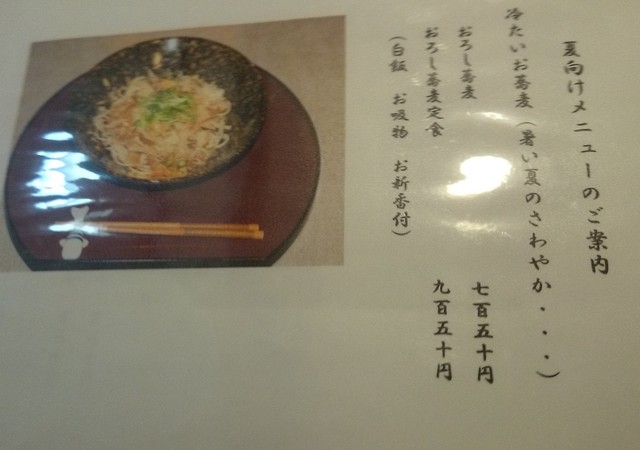 夏向けメニューのご案内
冷たいお蕎麦（暑い夏のさわやか・・・）
おろし蕎麦 七百五十円
おろし蕎麦定食 九百五十円
（白飯 お吸物 お新香付）